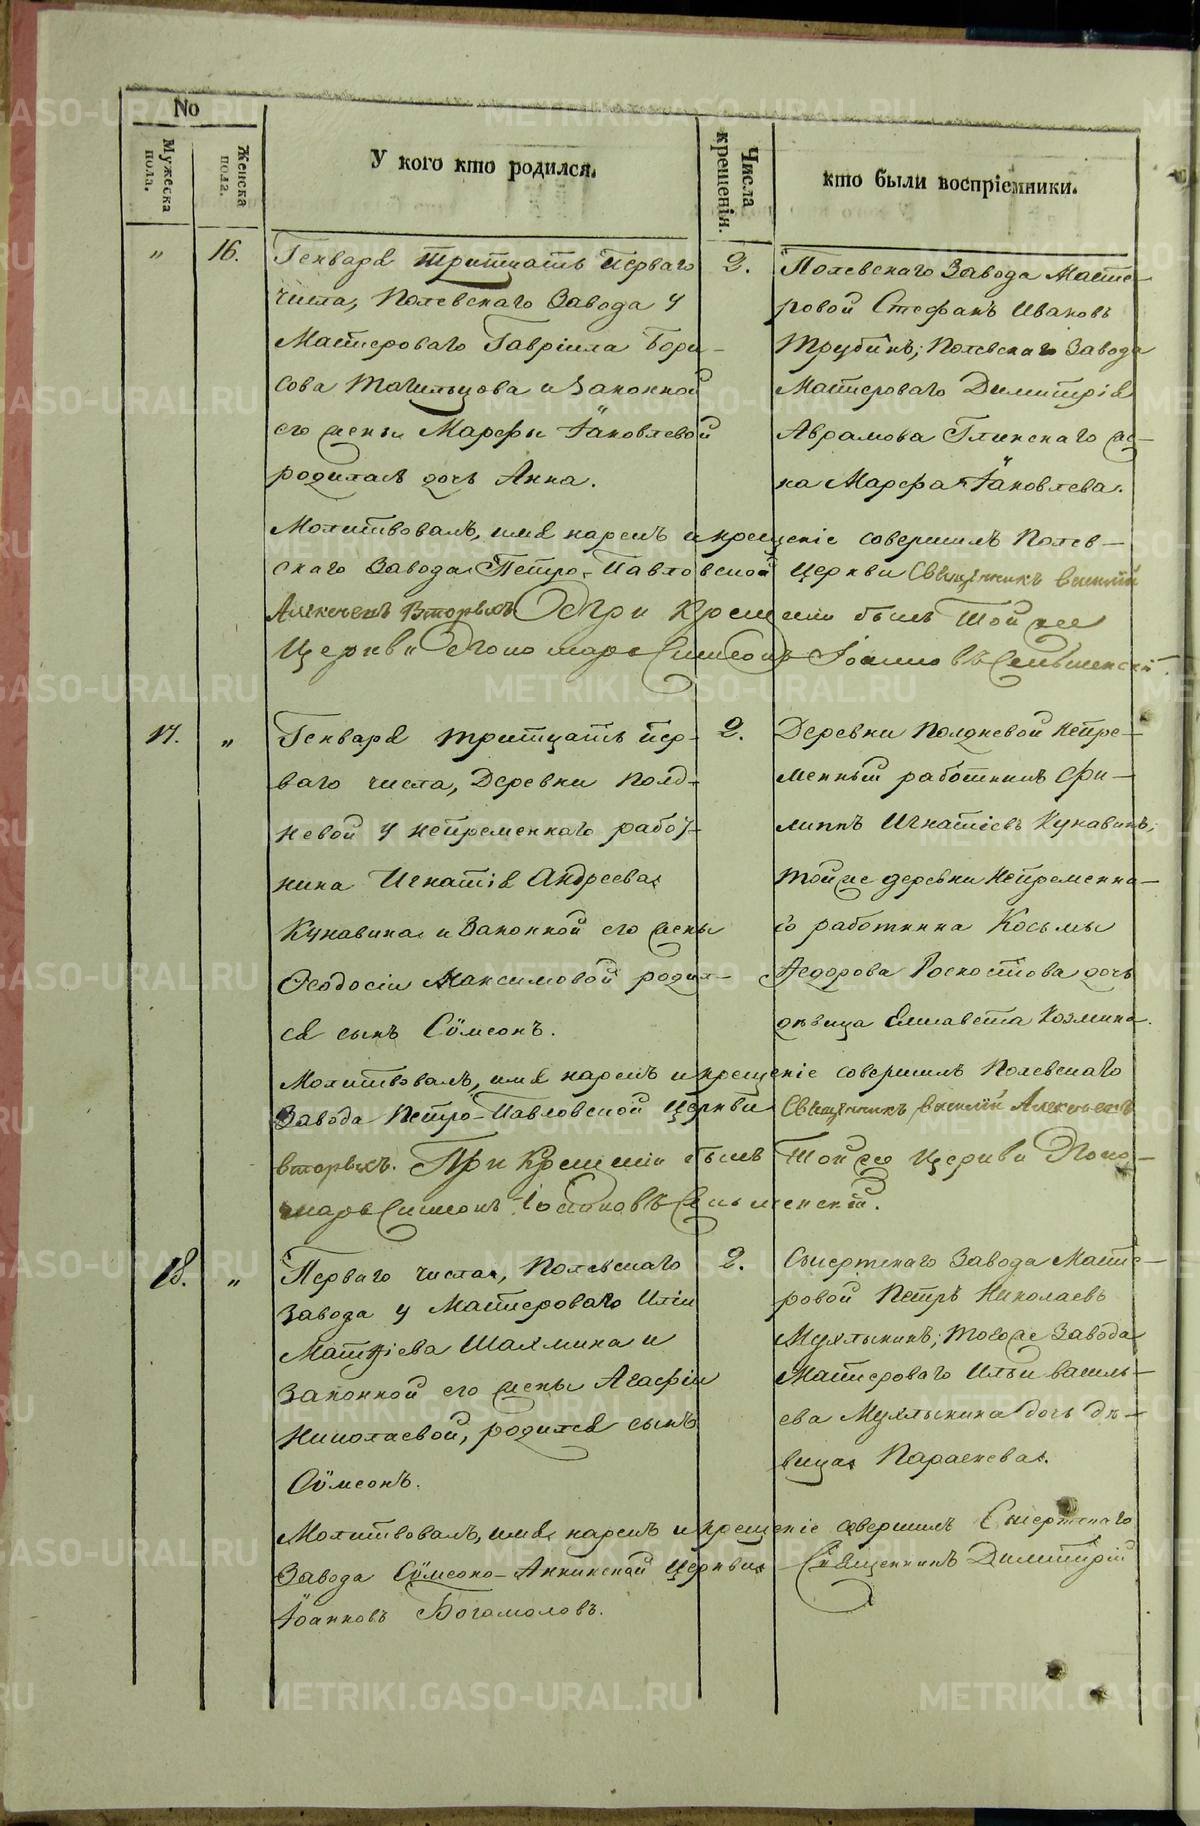 No
Мужеска пола.
Женска пола.
У кого кто родился.
Числа крещенія.
кто были воспріемники.
„ 16.
Генваря тритцать перваго
числа, Полевскаго Завода у
Мастероваго Гавріила Бори-
сова Тагильцова и Законной
его жены Марфы Іаковлевой
родилась дочь Анна.
2.
Полевскаго Завода Масте-
ровой Стефанъ Ивановъ
Трубинъ; Полевскаго Завода
Мастероваго Димитрія
Аврамова Глинскаго же-
на Марфа Іаковлева.
Молитвовалъ, имя нарекъ и крещеніе совершилъ Полев-
скаго Завода Петро-Павловской Церкви Священникъ Василій
Алексеевъ Вторыхъ При Крещеніи былъ Той же
Церкви Пономарь Симеонъ Іоанновъ Сельменскій
17. „
Генваря тритцать пер-
ваго числа, Деревни Полд-
невой у непременнаго работ-
ника Игнатія Андреева
Кунавина и Законной его жены
Ѳеодосіи Максимовой родил-
ся сынъ Сѵмеонъ.
2.
Деревни Полдневой Непре-
менный работникъ Фи-
липпъ Игнатіевъ Кунавинъ;
тойже деревни Непременна-
го работника Косьмы
Ѳедорова дочь
дѣвица Елисавета Козмина.
Молитвовалъ, имя нарекъ и крещеніе совершилъ Полевскаго
Завода Петро-Павловской Церкви Священникъ Василій Алексеевъ
Вторыхъ. При Крещеніи былъ Той же Церкви Поно-
марь Симеонъ Іоанновъ Сельменскій.
18. „
Перваго числа, Полевскаго
Завода у Мастероваго Иліи
Матѳіева Шахмина и
Законной его жены Агафіи
Николаевой, родился сынъ
Сѵмеонъ.
2.
Сысертскаго Завода Масте-
ровой Петръ Николаевъ
Мухлынинъ; тогоже Завода
Мастероваго Ильи Василь-
ева Мухлынина дочь дѣ-
вица Параскева.
Молитвовалъ, имя нарекъ и крещеніе совершилъ Сысертскаго
Завода Сѵмеоно-Аннинской Церкви Священникъ Димитрій
Іоанновъ Богомоловъ.
METRIKI.GASO-URAL.RU